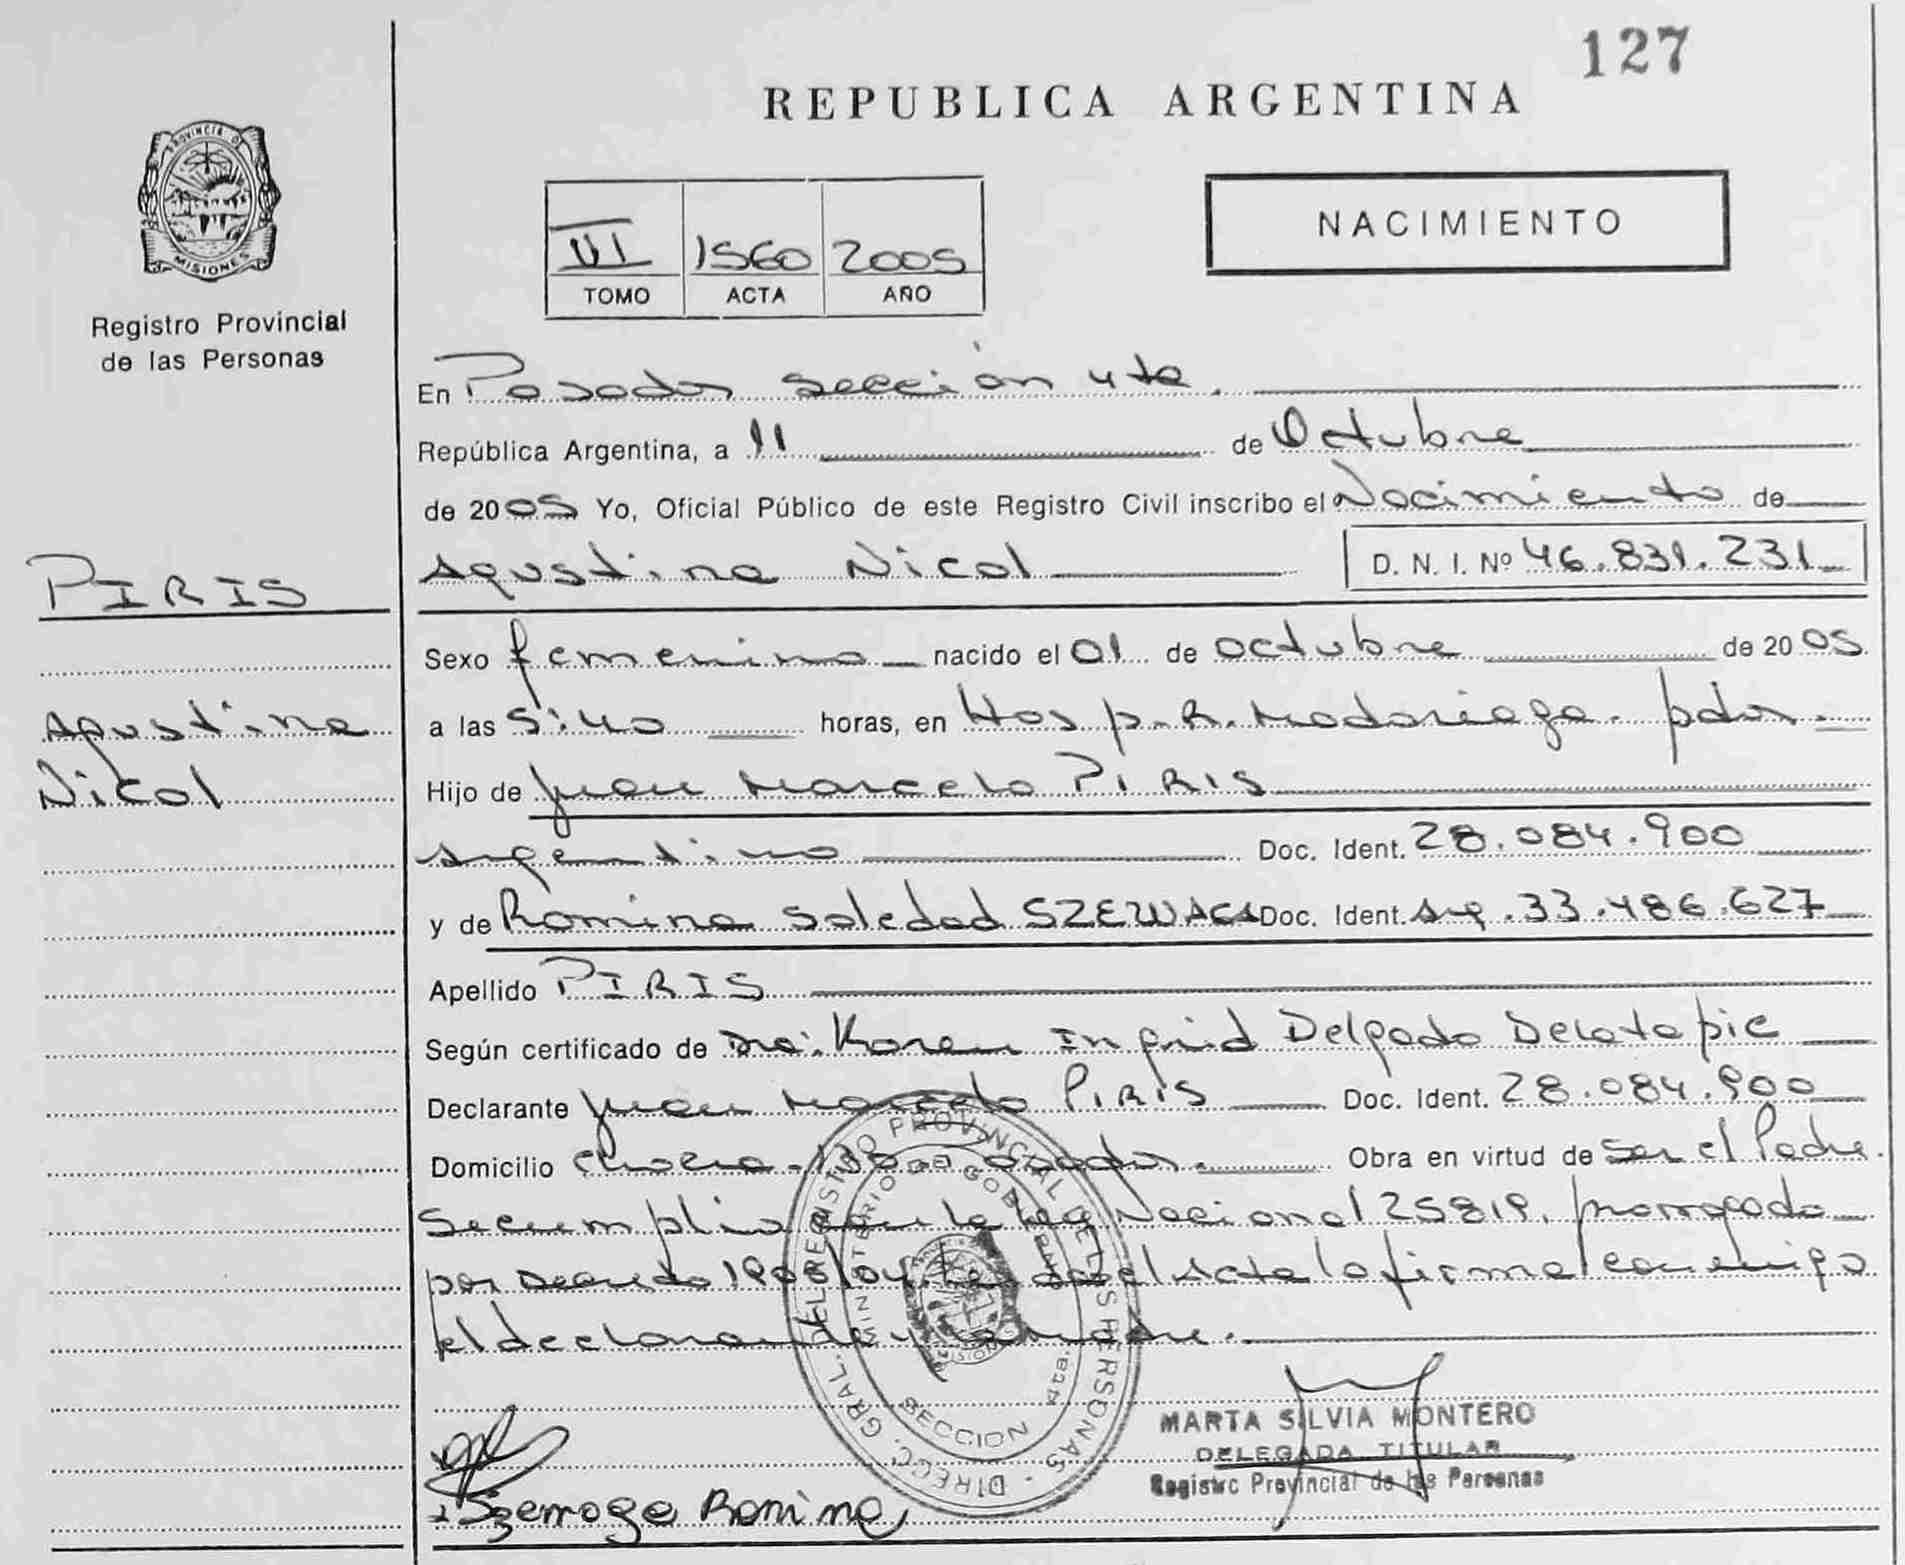 127
REPUBLICA ARGENTINA
PROVINCIA DE
MISIONES
Registro Provincial
de las Personas
VI 1560 2005
TOMO ACTA AÑO
NACIMIENTO
En Posadas sección 4ta.
República Argentina, a 11 de Octubre
de 2005 Yo, Oficial Público de este Registro Civil inscribo el Nacimiento de
Agustina Nicol D. N. I. Nº 46.831.231
PIRIS
Agustina
Nicol
Sexo femenino nacido el 01 de octubre de 2005
a las 5:40 horas, en Hosp. R. Madariaga. pdas.
Hijo de Juan Marcelo PIRIS
argentino Doc. Ident. 28.084.900
y de Romina Soledad Doc. Ident. Arg. 33.486.627
Apellido PIRIS
Según certificado de Dra. Karen Ingrid Delgado
Declarante Juan Marcelo PIRIS Doc. Ident. 28.084.900
Domicilio Posadas. Obra en virtud de ser el Padre.
Se cumplio con la Ley Nacional 25819, prorrogada
por Decreto 1908/04. el Acta la firma conmigo
el declarante y la madre.
DIRECC. GRAL. DEL REGISTRO PROVINCIAL DE LAS PERSONAS
MINISTERIO DE GOBIERNO
SECCION 4ta.
MARTA SILVIA MONTERO
DELEGADA TITULAR
Registro Provincial de las Personas
Romina